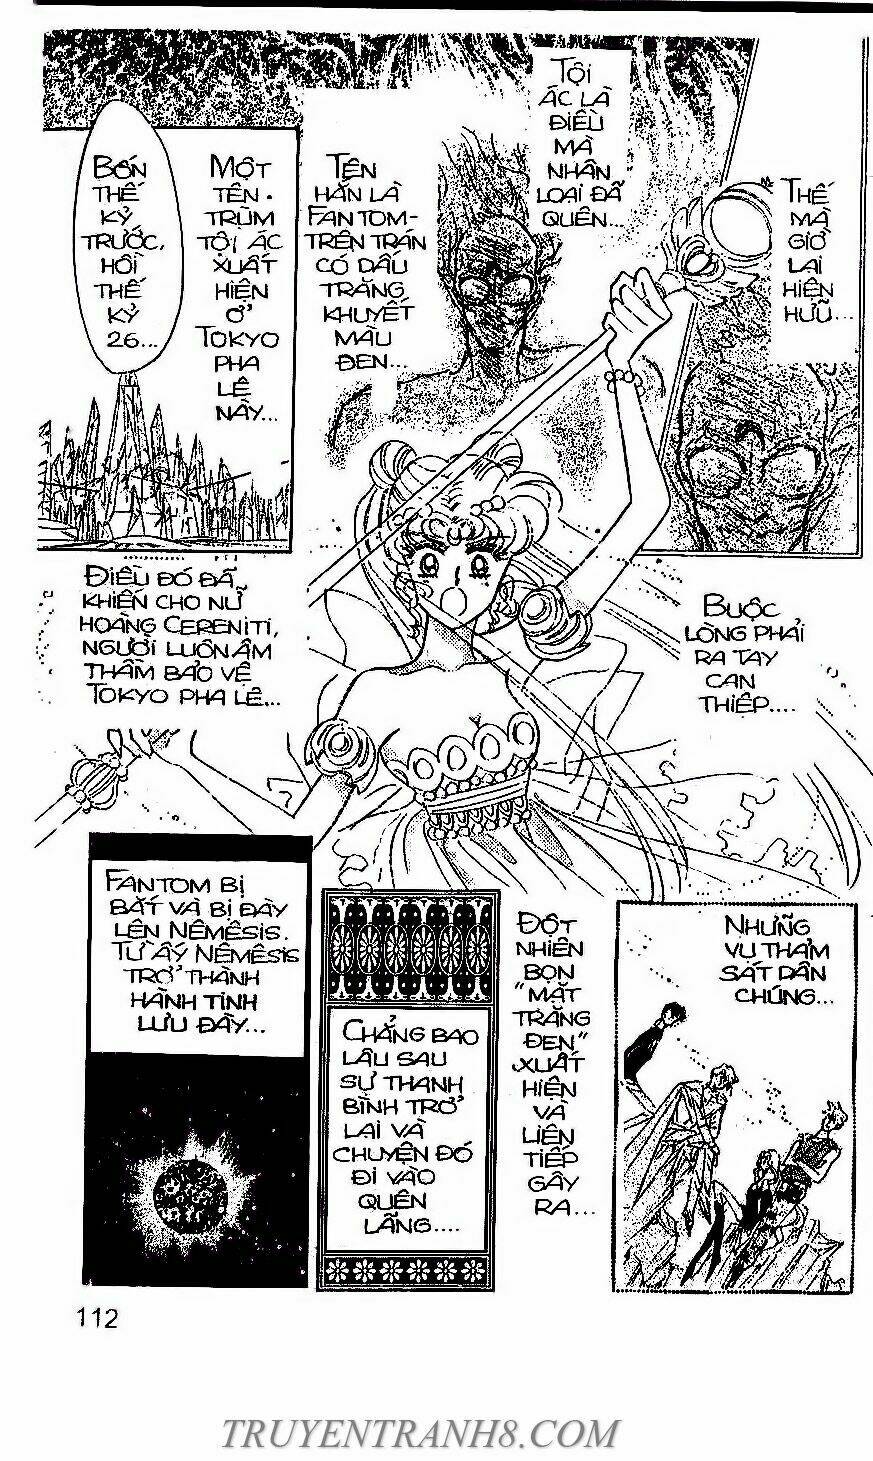 BỐN
THẾ
KỶ
TRƯỚC,
HỒI
THẾ
KỶ
26...
MỘT
TÊN
TRÙM
TỘI ÁC
XUẤT
HIỆN
Ở
TOKYO
PHA
LÊ
NÀY...
TÊN
HẮN LÀ
FANTOM-
TRÊN TRÁN
CÓ DẤU
TRĂNG
KHUYẾT
MÀU
ĐEN...
TỘI
ÁC LÀ
ĐIỀU
MÀ
NHÂN
LOẠI ĐÃ
QUÊN...
THẾ
MÀ
GIỜ
LẠI
HIỆN
HỮU...
ĐIỀU ĐÓ ĐÃ
KHIẾN CHO NỮ
HOÀNG CERENITI,
NGƯỜI LUÔN ÂM
THẦM BẢO VỆ
TOKYO PHA LÊ...
BUỘC
LÒNG PHẢI
RA TAY
CAN
THIỆP....
FANTOM BỊ
BẮT VÀ BỊ ĐÀY
LÊN NÊMÊSIS.
TỪ ẤY NÊMÊSIS
TRỞ THÀNH
HÀNH TINH
LƯU ĐÀY...
CHẲNG BAO
LÂU SAU
SỰ THANH
BÌNH TRỞ
LẠI VÀ
CHUYỆN ĐÓ
ĐI VÀO
QUÊN
LÃNG....
ĐỘT
NHIÊN
BỌN
"MẶT
TRĂNG
ĐEN"
XUẤT
HIỆN
VÀ
LIÊN
TIẾP
GÂY
RA...
NHỮNG
VỤ THẢM
SÁT DÂN
CHÚNG...
112
TRUYENTRANH8.COM